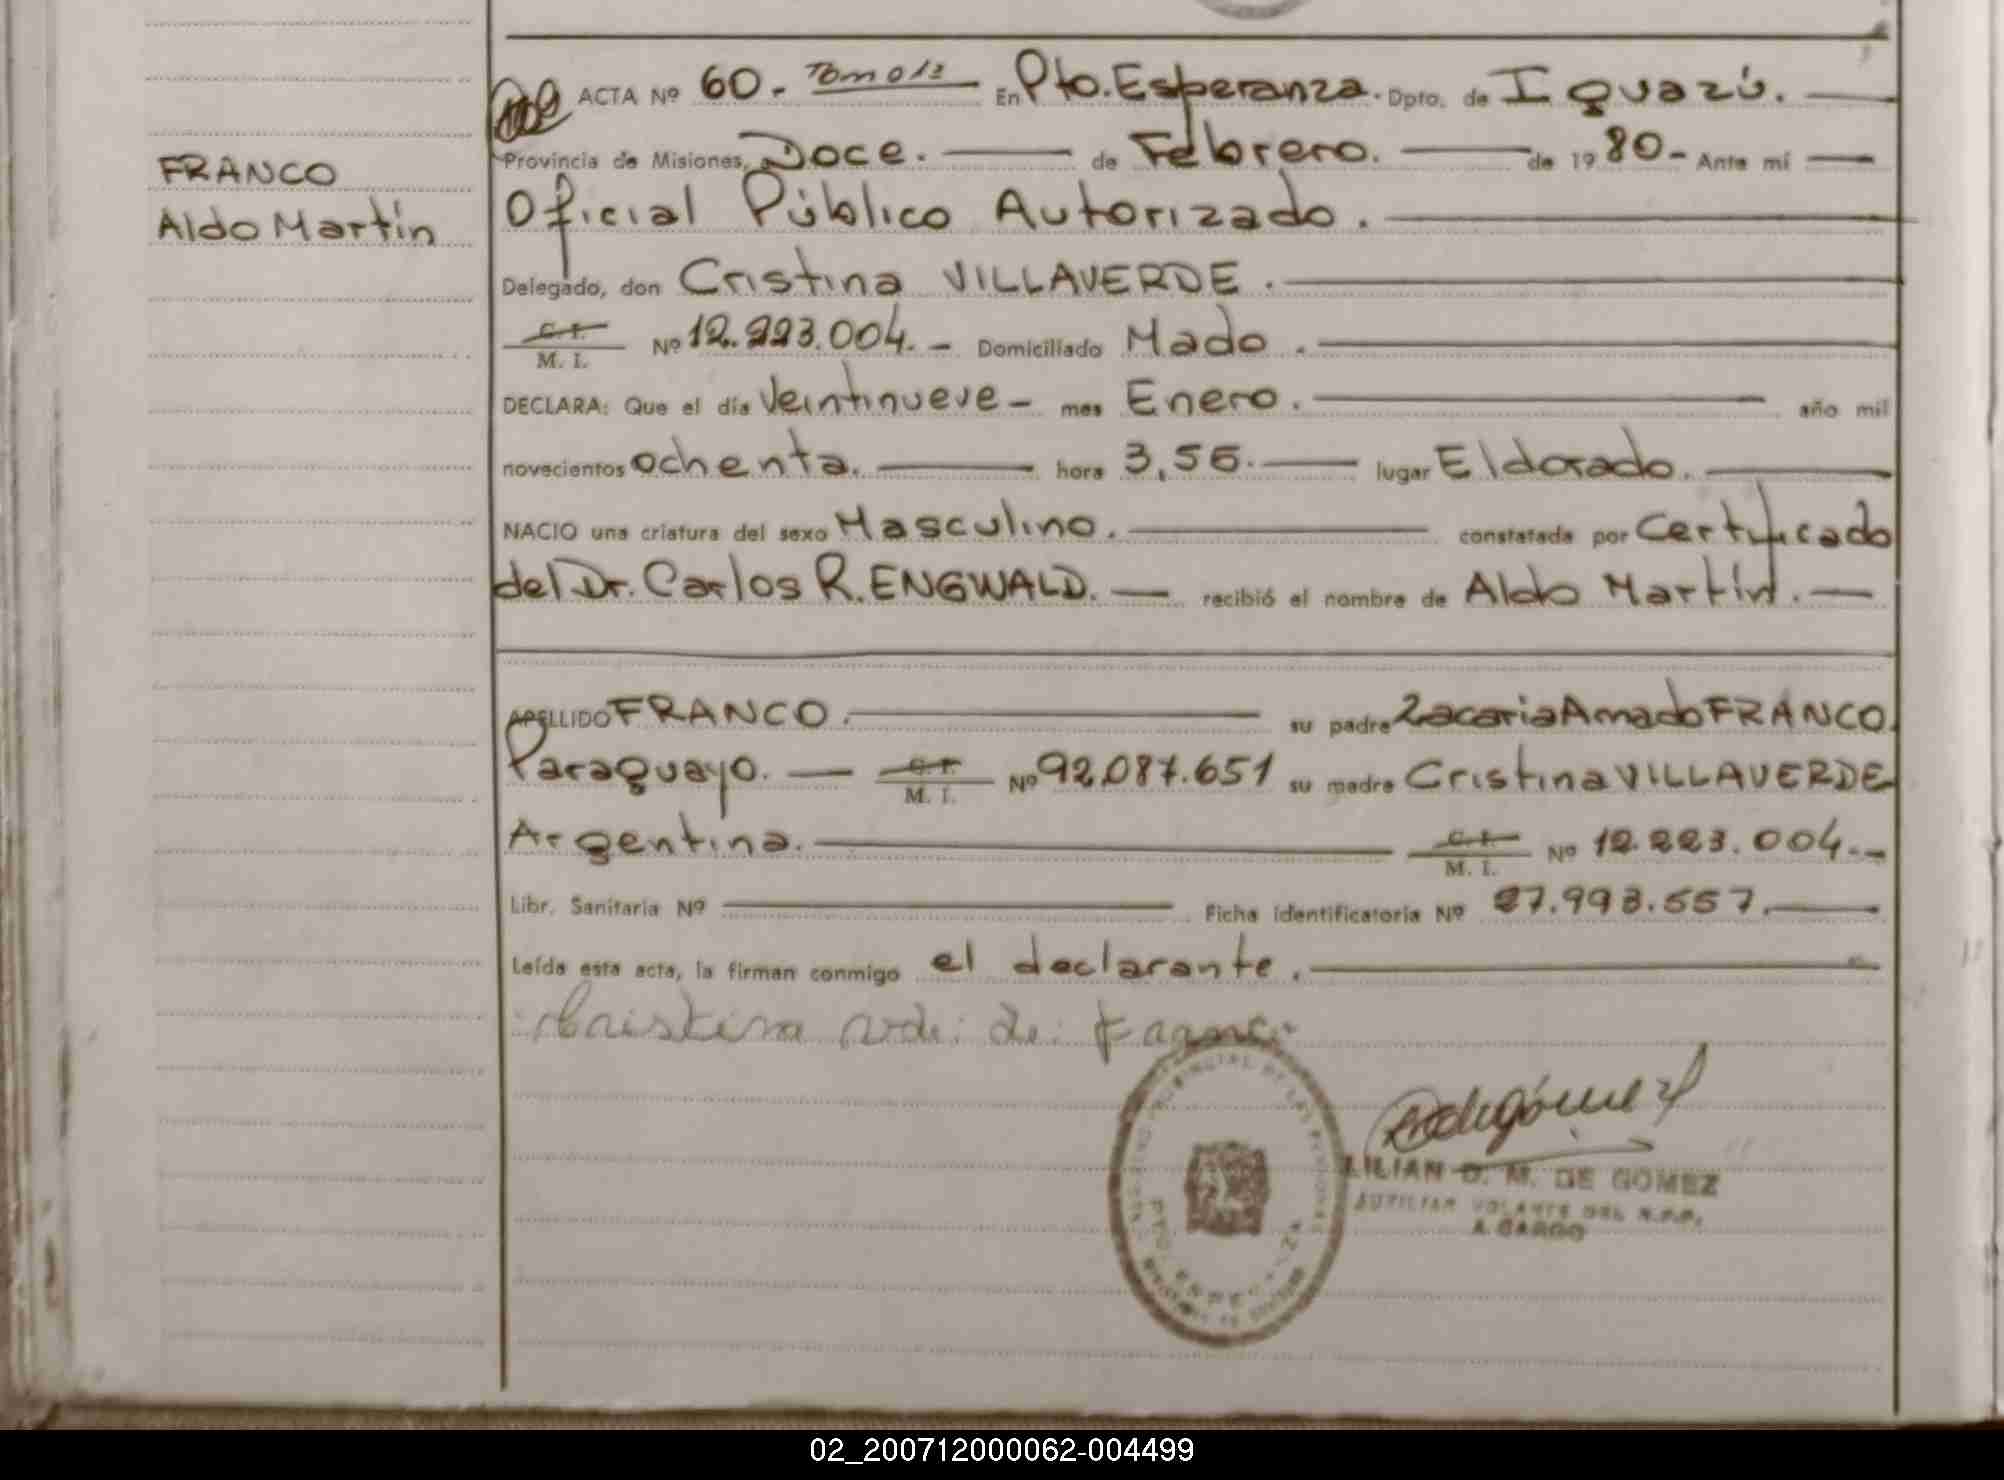 ACTA Nº 60.- Tomo 1º En Pto. Esperanza. Dpto. de Iguazú.
Provincia de Misiones, Doce. de Febrero. de 1980.- Ante mí
FRANCO
Oficial Público Autorizado.
Aldo Martín
Delegado, don Cristina VILLAVERDE.
C. I.
M. I. Nº 12.223.004.- Domiciliado Mado.
DECLARA: Que el día Veintinueve- mes Enero. año mil
novecientos ochenta. hora 3,55. lugar Eldorado.
NACIO una criatura del sexo Masculino. constatada por Certificado
del Dr. Carlos R. ENGWALD. recibió el nombre de Aldo Martín.
APELLIDO FRANCO. su padre Zacaria Amado FRANCO.
Paraguayo. C. I. M. I. Nº 92.087.651 su madre Cristina VILLAVERDE
Argentina. C. I. M. I. Nº 12.223.004.-
Libr. Sanitaria Nº Ficha identificatoria Nº 27.993.557.
Leída esta acta, la firman conmigo el declarante.
Cristina de
LILIAN D. M. DE GOMEZ
AUXILIAR VOLANTE DEL R.P.P.
A CARGO
02_200712000062-004499